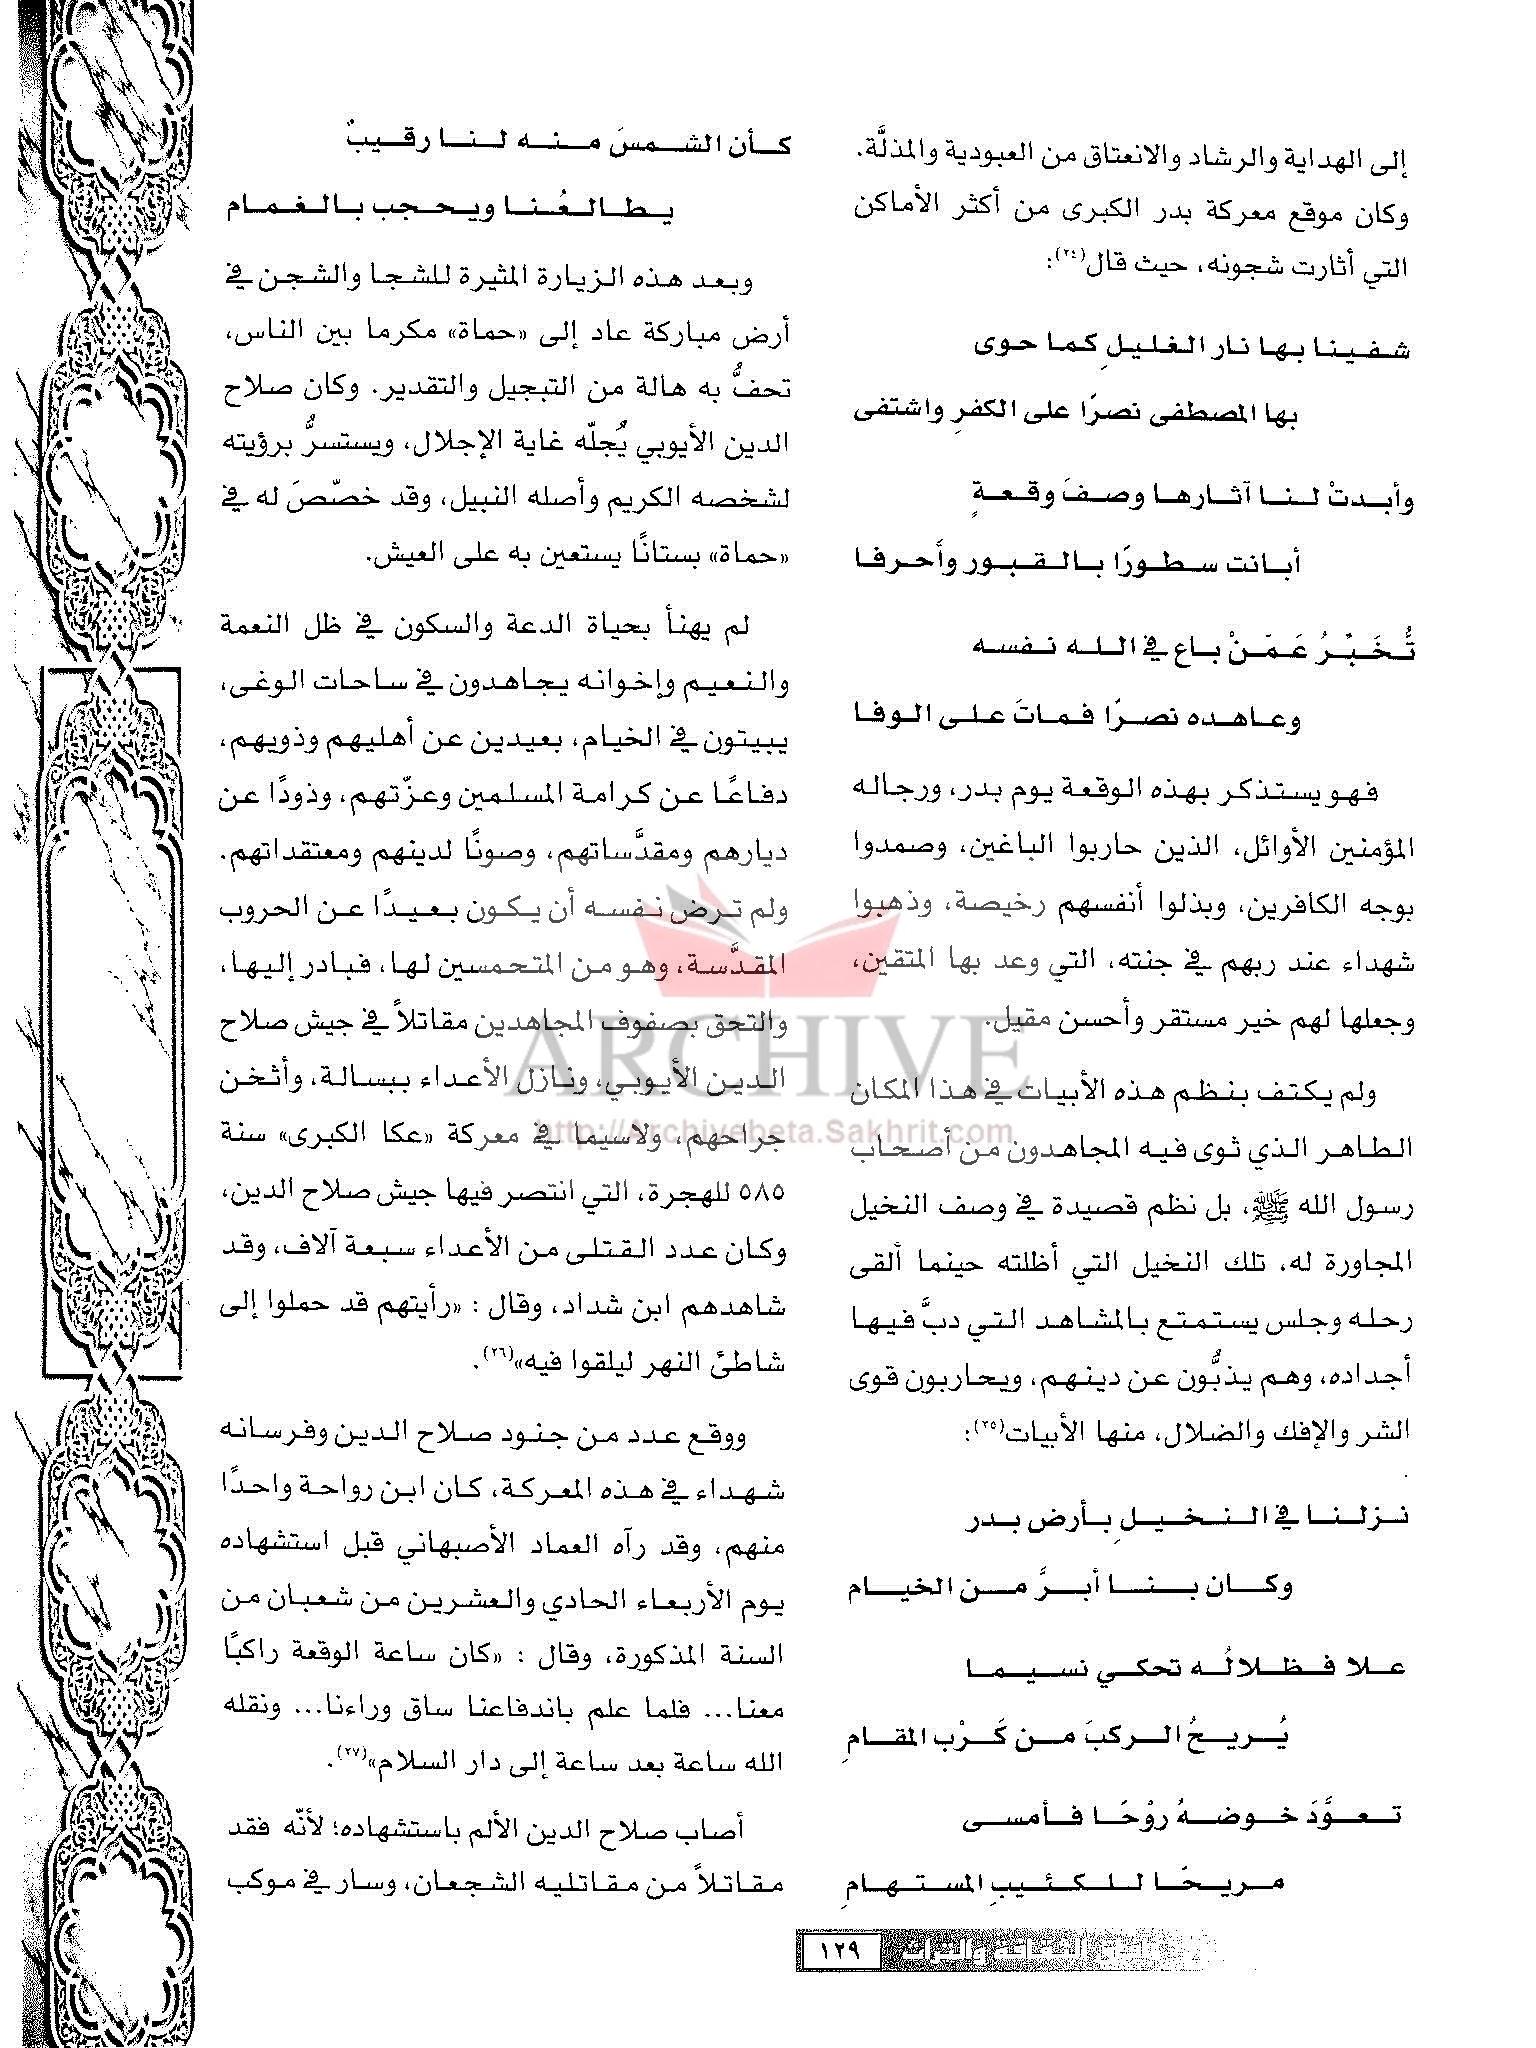 إلى الهداية والرشاد والانعتاق من العبودية والمذلَّة.
وكان موقع معركة بدر الكبرى من أكثر الأماكن
التي أثارت شجونه، حيث قال(٢٤):
شفينا بها نار الغليلِ كما حوى
بها المصطفى نصرًا على الكفرِ واشتفى
وأبدتْ لنا آثارها وصفَ وقعةٍ
أبانت سطورًا بالقبور وأحرفا
تُخَبِّرُ عَمَنْ باع في الله نفسه
وعاهده نصرًا فماتَ على الوفا
فهو يستذكر بهذه الوقعة يوم بدر، ورجاله
المؤمنين الأوائل، الذين حاربوا الباغين، وصمدوا
بوجه الكافرين، وبذلوا أنفسهم رخيصة، وذهبوا
شهداء عند ربهم في جنته، التي وعد بها المتقين،
وجعلها لهم خير مستقر وأحسن مقيل.
ولم يكتف بنظم هذه الأبيات في هذا المكان
الطاهر الذي ثوى فيه المجاهدون من أصحاب
رسول الله ﷺ، بل نظم قصيدة في وصف النخيل
المجاورة له، تلك النخيل التي أظلته حينما ألقى
رحله وجلس يستمتع بالمشاهد التي دبَّ فيها
أجداده، وهم يذبُّون عن دينهم، ويحاربون قوى
الشر والإفك والضلال، منها الأبيات(٢٥):
نزلنا في النخيلِ بأرض بدر
وكان بنا أبرَّ من الخيام
علا فظلالُه تحكي نسيما
يُريحُ الركبَ من كَرْب المقامِ
تعوَّدَ خوضهُ روْحًا فأمسى
مريحًا للكئيبِ المستهامِ
كأن الشمسَ منه لنا رقيبٌ
يطالعُنا ويحجب بالغمام
وبعد هذه الزيارة المثيرة للشجا والشجن في
أرض مباركة عاد إلى «حماة» مكرما بين الناس،
تحفُّ به هالة من التبجيل والتقدير. وكان صلاح
الدين الأيوبي يُجلّه غاية الإجلال، ويستسرُّ برؤيته
لشخصه الكريم وأصله النبيل، وقد خصّصَ له في
«حماة» بستانًا يستعين به على العيش.
لم يهنأ بحياة الدعة والسكون في ظل النعمة
والنعيم وإخوانه يجاهدون في ساحات الوغى،
يبيتون في الخيام، بعيدين عن أهليهم وذويهم،
دفاعًا عن كرامة المسلمين وعزّتهم، وذودًا عن
ديارهم ومقدَّساتهم، وصونًا لدينهم ومعتقداتهم.
ولم ترض نفسه أن يكون بعيدًا عن الحروب
المقدَّسة، وهو من المتحمسين لها، فبادر إليها،
والتحق بصفوف المجاهدين مقاتلاً في جيش صلاح
الدين الأيوبي، ونازل الأعداء ببسالة، وأثخن
جراحهم، ولاسيما في معركة «عكا الكبرى» سنة
٥٨٥ للهجرة، التي انتصر فيها جيش صلاح الدين،
وكان عدد القتلى من الأعداء سبعة آلاف، وقد
شاهدهم ابن شداد، وقال : «رأيتهم قد حملوا إلى
شاطئ النهر ليلقوا فيه»(٢٦).
ووقع عدد من جنود صلاح الدين وفرسانه
شهداء في هذه المعركة، كان ابن رواحة واحدًا
منهم، وقد رآه العماد الأصبهاني قبل استشهاده
يوم الأربعاء الحادي والعشرين من شعبان من
السنة المذكورة، وقال : «كان ساعة الوقعة راكبًا
معنا... فلما علم باندفاعنا ساق وراءنا... ونقله
الله ساعة بعد ساعة إلى دار السلام»(٢٧).
أصاب صلاح الدين الألم باستشهاده؛ لأنّه فقد
مقاتلاً من مقاتليه الشجعان، وسار في موكب
ARCHIVE
http://Archivebeta.Sakhrit.com
آفاق الثقافة والتراث ١٢٩